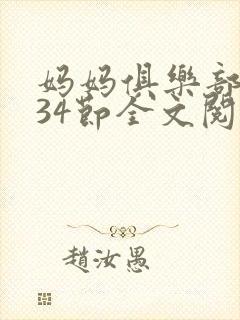 妈妈俱樂部
34節全文閱
趙汝愚